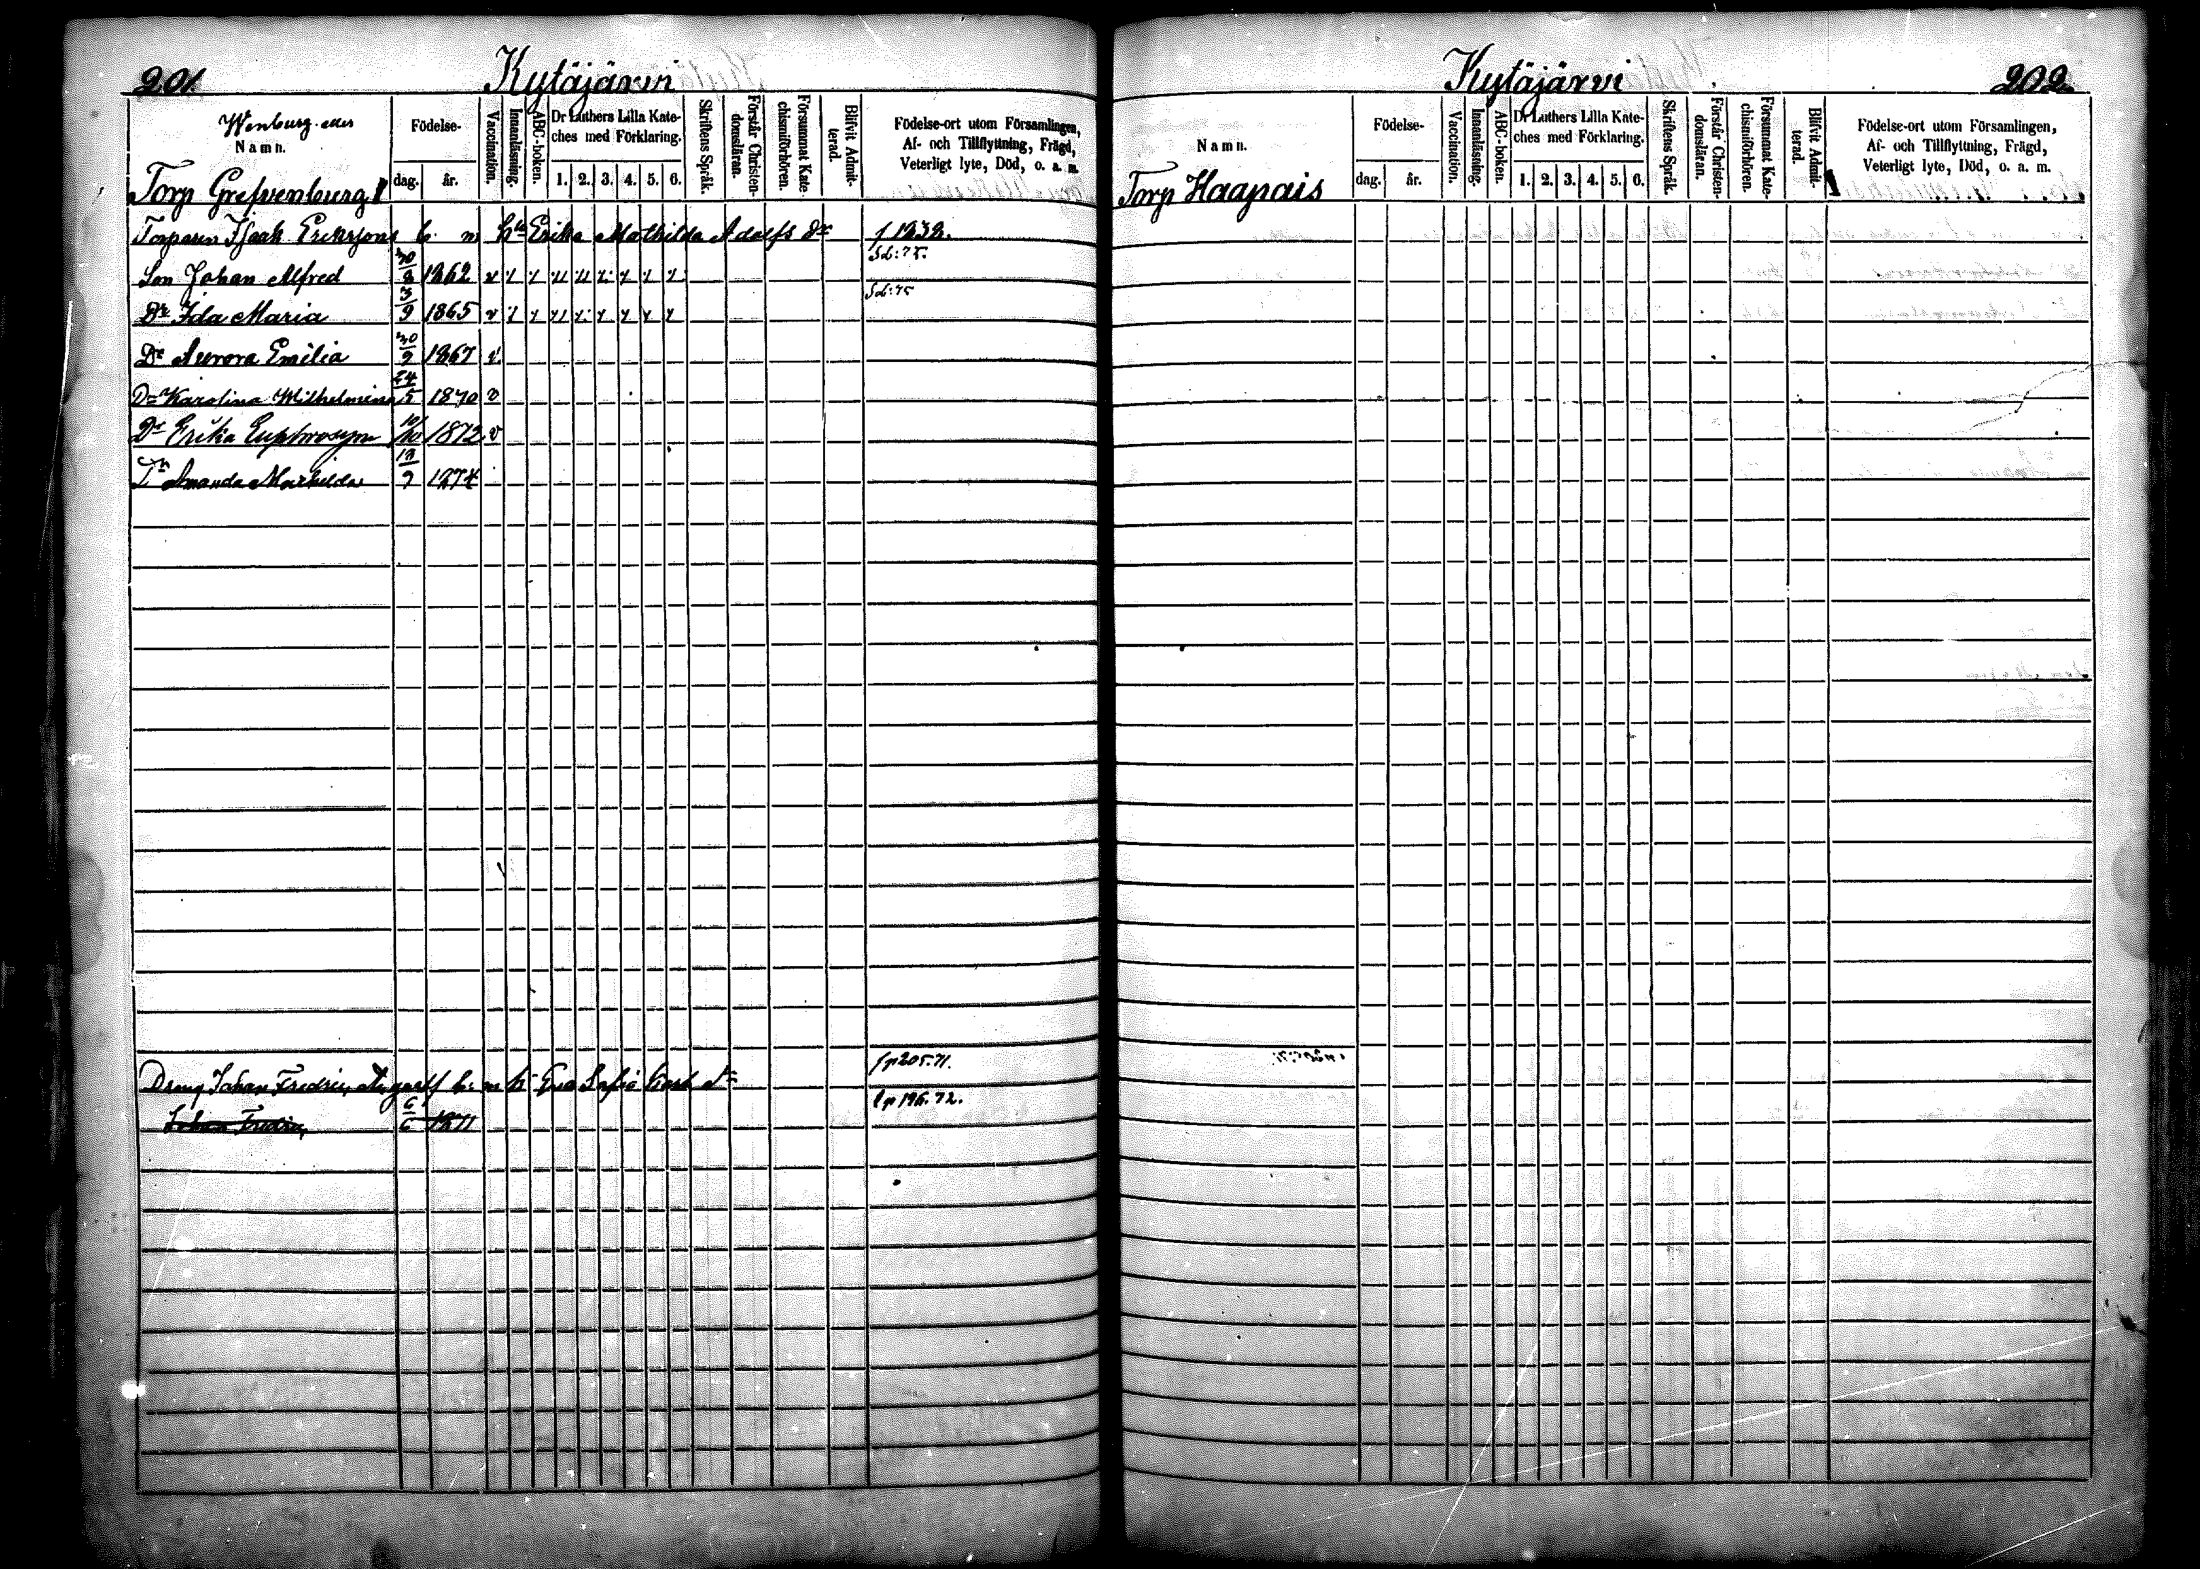 201.
Kytäjärvi
Wenburg eller
Namn.
Födelse-
dag. år.
Vaccination.
Innanläsning.
ABC-boken.
Dr Luthers Lilla Kate-
ches med Förklaring.
1. 2. 3. 4. 5. 6.
Skriftens Språk.
Förstår Christen-
domsläran.
Försummat Kate-
chismiförhören.
Blifvit Admit-
terad.
Födelse-ort utom Församlingen,
Af- och Tillflyttning, Frägd,
Veterligt lyte, Död, o. a. m.
Torp Grefvenburg
Torparen Isaak Erikssons b. m h Erika Mathilda Adolfs dr f 1232.
Son Johan Alfred 1862 v
Dr Ida Maria 3/9 1865 v
Dr Aurora Emilia 30/9 1867 v
Dr Karolina Wilhelmina 24/5 1870 v
Dr Erika Euphrosyn 10/10 1872 v
Amanda Mathilda 1874
Dreng Johan Fredric b. m h Eva Sofia f p 205.71.
Johan Fredric 6/6 1871 p 196.72.
Kytäjärvi
202.
Namn.
Födelse-
dag. år.
Vaccination.
Innanläsning.
ABC-boken.
Dr Luthers Lilla Kate-
ches med Förklaring.
1. 2. 3. 4. 5. 6.
Skriftens Språk.
Förstår Christen-
domsläran.
Försummat Kate-
chismiförhören.
Blifvit Admit-
terad.
Födelse-ort utom Församlingen,
Af- och Tillflyttning, Frägd,
Veterligt lyte, Död, o. a. m.
Torp Haapais